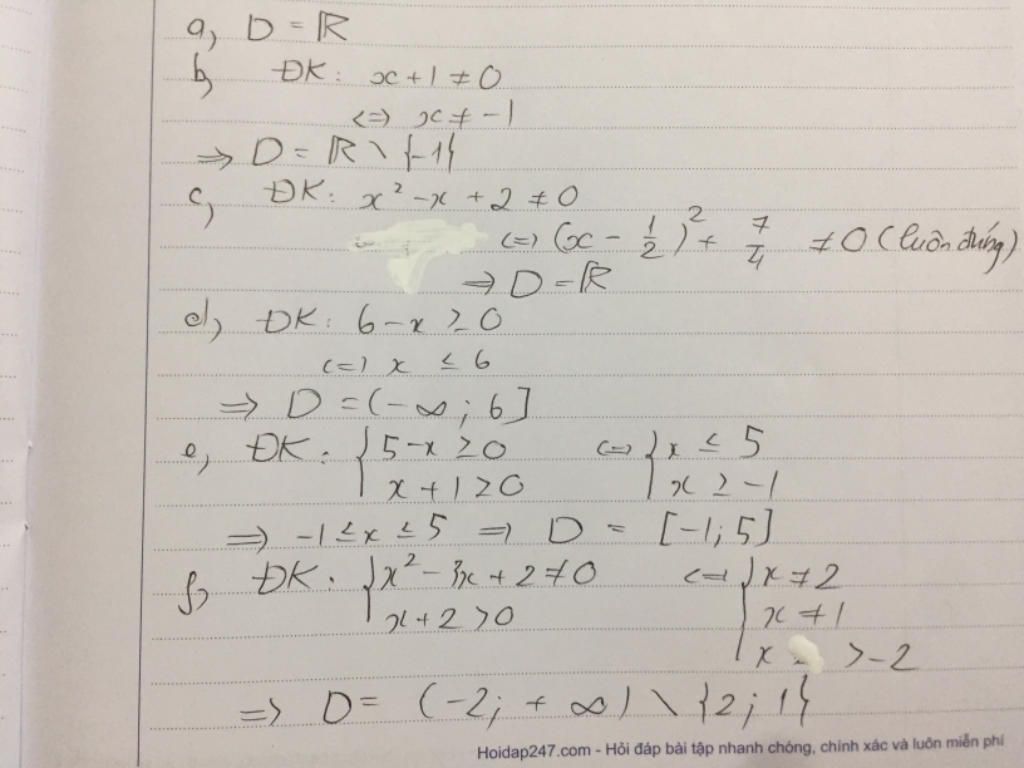 a, D = ℝ
b, ĐK: x + 1 ≠ 0
<=> x ≠ -1
=> D = ℝ \ {-1}
c, ĐK: x² - x + 2 ≠ 0
<=> (x - 1/2)² + 7/4 ≠ 0 (luôn đúng)
=> D = ℝ
d, ĐK: 6 - x ≥ 0
<=> x ≤ 6
=> D = (-∞; 6]
e, ĐK: { 5 - x ≥ 0 <=> { x ≤ 5
x + 1 ≥ 0 x ≥ -1
=> -1 ≤ x ≤ 5 => D = [-1; 5]
f, ĐK: { x² - 3x + 2 ≠ 0 <=> { x ≠ 2
x + 2 > 0 x ≠ 1
x > -2
=> D = (-2; +∞) \ {2; 1}
Hoidap247.com - Hỏi đáp bài tập nhanh chóng, chính xác và luôn miễn phí